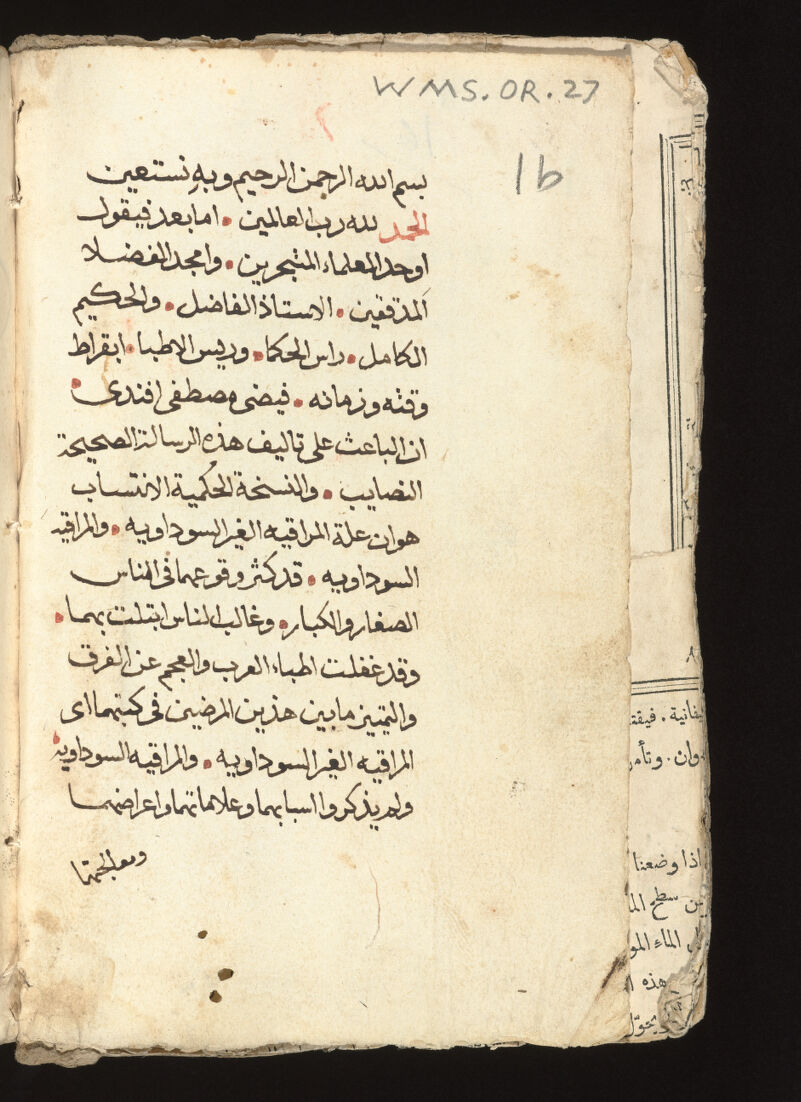 WMS. OR. 27
1b
بسم الله الرحمن الرحيم وبه نستعين
الحمد لله رب العالمين • اما بعد فيقول
اوحد العلماء المتبحرين • وامجد الفضلا
المدققين • الاستاذ الفاضل • والحكيم
الكامل • راس الحكما • وريس الاطبا • ابقراط
وقته وزمانه • فيضى مصطفى افندى •
ان الباعث على تاليف هذه الرسالة الصحيحة
النصايب • والنسخة الحكمية الانتساب
هو ان علة المراقيه الغير السوداويه • والمراقيه
السوداويه • قد كثر وقوعهما فى الناس
الصغار والكبار • وغالب الناس ابتلت بهما •
وقد غفلت اطباء العرب والعجم عن الفرق
والتمييز ما بين هذين المرضين فى كتبهما اى
المراقيه الغير السوداويه • والمراقيه السوداويه •
ولم يذكروا اسبابهما وعلاماتهما واعراضهما
فيقتد
وان . وتأمر
اذا وضعنا
سطح الما
الماء المو
هذه